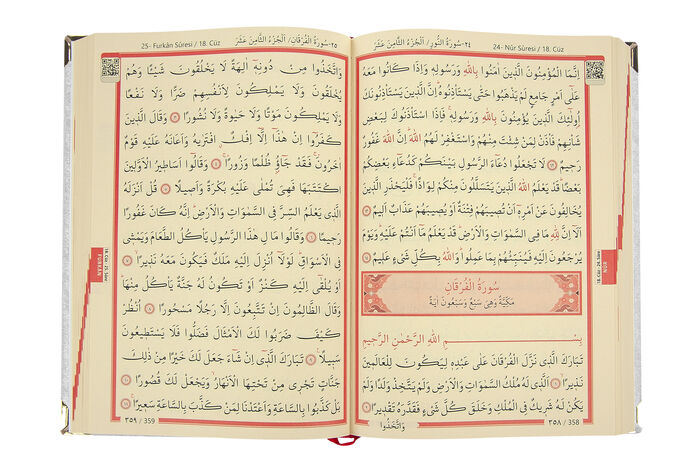 ٢٤-سُورَةُ النُّورِ/ اَلْجُزْءُ الثَّامِنَ عَشَرَ
24- Nûr Sûresi / 18. Cüz
اِنَّمَا الْمُؤْمِنُونَ الَّذٖينَ اٰمَنُوا بِاللّٰهِ وَرَسُولِهٖ وَاِذَا كَانُوا مَعَهُ
عَلٰٓى اَمْرٍ جَامِعٍ لَمْ يَذْهَبُوا حَتّٰى يَسْتَأْذِنُوهُؕ اِنَّ الَّذٖينَ يَسْتَأْذِنُونَكَ
اُو۬لٰٓئِكَ الَّذٖينَ يُؤْمِنُونَ بِاللّٰهِ وَرَسُولِهٖۚ فَاِذَا اسْتَأْذَنُوكَ لِبَعْضِ
شَأْنِهِمْ فَأْذَنْ لِمَنْ شِئْتَ مِنْهُمْ وَاسْتَغْفِرْ لَهُمُ اللّٰهَؕ اِنَّ اللّٰهَ غَفُورٌ
رَحٖيمٌ ﴿٦٢﴾ لَا تَجْعَلُوا دُعَٓاءَ الرَّسُولِ بَيْنَكُمْ كَدُعَٓاءِ بَعْضِكُمْ
بَعْضًاؕ قَدْ يَعْلَمُ اللّٰهُ الَّذٖينَ يَتَسَلَّلُونَ مِنْكُمْ لِوَاذًاۚ فَلْيَحْذَرِ الَّذٖينَ
يُخَالِفُونَ عَنْ اَمْرِهٖٓ اَنْ تُصٖيبَهُمْ فِتْنَةٌ اَوْ يُصٖيبَهُمْ عَذَابٌ اَلٖيمٌ ﴿٦٣﴾
اَلَٓا اِنَّ لِلّٰهِ مَا فِى السَّمٰوَاتِ وَالْاَرْضِؕ قَدْ يَعْلَمُ مَٓا اَنْتُمْ عَلَيْهِؕ وَيَوْمَ
يُرْجَعُونَ اِلَيْهِ فَيُنَبِّئُهُمْ بِمَا عَمِلُواؕ وَاللّٰهُ بِكُلِّ شَىْءٍ عَلٖيمٌ ﴿٦٤﴾
سُورَةُ الْفُرْقَانِ
مَكِّيَّةٌ وَهِىَ سَبْعٌ وَسَبْعُونَ اٰيَةً
بِسْمِ اللّٰهِ الرَّحْمٰنِ الرَّحٖيمِ
تَبَارَكَ الَّذٖى نَزَّلَ الْفُرْقَانَ عَلٰى عَبْدِهٖ لِيَكُونَ لِلْعَالَمٖينَ
نَذٖيرًاۙ ﴿١﴾ اَلَّذٖى لَهُ مُلْكُ السَّمٰوَاتِ وَالْاَرْضِ وَلَمْ يَتَّخِذْ وَلَدًا وَلَمْ
يَكُنْ لَهُ شَرٖيكٌ فِى الْمُلْكِ وَخَلَقَ كُلَّ شَىْءٍ فَقَدَّرَهُ تَقْدٖيرًا ﴿٢﴾
وَاتَّخَذُوا
٣٥٨ / 358
18. Cüz - 24. Sûre
NÛR
25- Furkân Sûresi / 18. Cüz
٢٥-سُورَةُ الْفُرْقَانِ/ اَلْجُزْءُ الثَّامِنَ عَشَرَ
وَاتَّخَذُوا مِنْ دُونِهٖٓ اٰلِهَةً لَا يَخْلُقُونَ شَيْـًٔا وَهُمْ
يُخْلَقُونَ وَلَا يَمْلِكُونَ لِاَنْفُسِهِمْ ضَرًّا وَلَا نَفْعًا
وَلَا يَمْلِكُونَ مَوْتًا وَلَا حَيٰوةً وَلَا نُشُورًا ﴿٣﴾ وَقَالَ الَّذٖينَ
كَفَرُٓوا اِنْ هٰذَٓا اِلَّٓا اِفْكٌۨ افْتَرٰيهُ وَاَعَانَهُ عَلَيْهِ قَوْمٌ
اٰخَرُونَۚ فَقَدْ جَٓاؤُ۫ ظُلْمًا وَزُورًاۚ ﴿٤﴾ وَقَالُٓوا اَسَاطٖيرُ الْاَوَّلٖينَ
اكْتَتَبَهَا فَهِىَ تُمْلٰى عَلَيْهِ بُكْرَةً وَاَصٖيلًا ﴿٥﴾ قُلْ اَنْزَلَهُ
الَّذٖى يَعْلَمُ السِّرَّ فِى السَّمٰوَاتِ وَالْاَرْضِؕ اِنَّهُ كَانَ غَفُورًا
رَحٖيمًا ﴿٦﴾ وَقَالُوا مَالِ هٰذَا الرَّسُولِ يَأْكُلُ الطَّعَامَ وَيَمْشٖى
فِى الْاَسْوَاقِؕ لَوْلَٓا اُنْزِلَ اِلَيْهِ مَلَكٌ فَيَكُونَ مَعَهُ نَذٖيرًاۙ ﴿٧﴾
اَوْ يُلْقٰٓى اِلَيْهِ كَنْزٌ اَوْ تَكُونُ لَهُ جَنَّةٌ يَأْكُلُ مِنْهَاؕ
وَقَالَ الظَّالِمُونَ اِنْ تَتَّبِعُونَ اِلَّا رَجُلًا مَسْحُورًا ﴿٨﴾ اُنْظُرْ
كَيْفَ ضَرَبُوا لَكَ الْاَمْثَالَ فَضَلُّوا فَلَا يَسْتَطٖيعُونَ
سَبٖيلًا ﴿٩﴾ تَبَارَكَ الَّذٖٓى اِنْ شَٓاءَ جَعَلَ لَكَ خَيْرًا مِنْ ذٰلِكَ
جَنَّاتٍ تَجْرٖى مِنْ تَحْتِهَا الْاَنْهَارُۙ وَيَجْعَلْ لَكَ قُصُورًا ﴿١٠﴾
بَلْ كَذَّبُوا بِالسَّاعَةِ وَاَعْتَدْنَا لِمَنْ كَذَّبَ بِالسَّاعَةِ سَعٖيرًاۚ ﴿١١﴾
٣٥٩ / 359
18. Cüz - 25. Sûre
FURKÂN